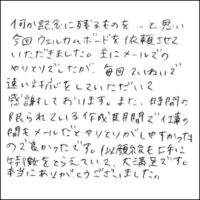 何か記念に残るものを…と思い
今回ウェルカムボードを依頼させて
いただきました。主にメールでの
やりとりでしたが、毎回ていねいで
速い対応をしていただいて
感謝しております。また、時間の
限られている作成期間で仕事の
間もメールだとやりとりがしやすかった
ので良かったです。似顔絵も上手に
特徴をとらえていて、大満足です。
本当にありがとうございました。